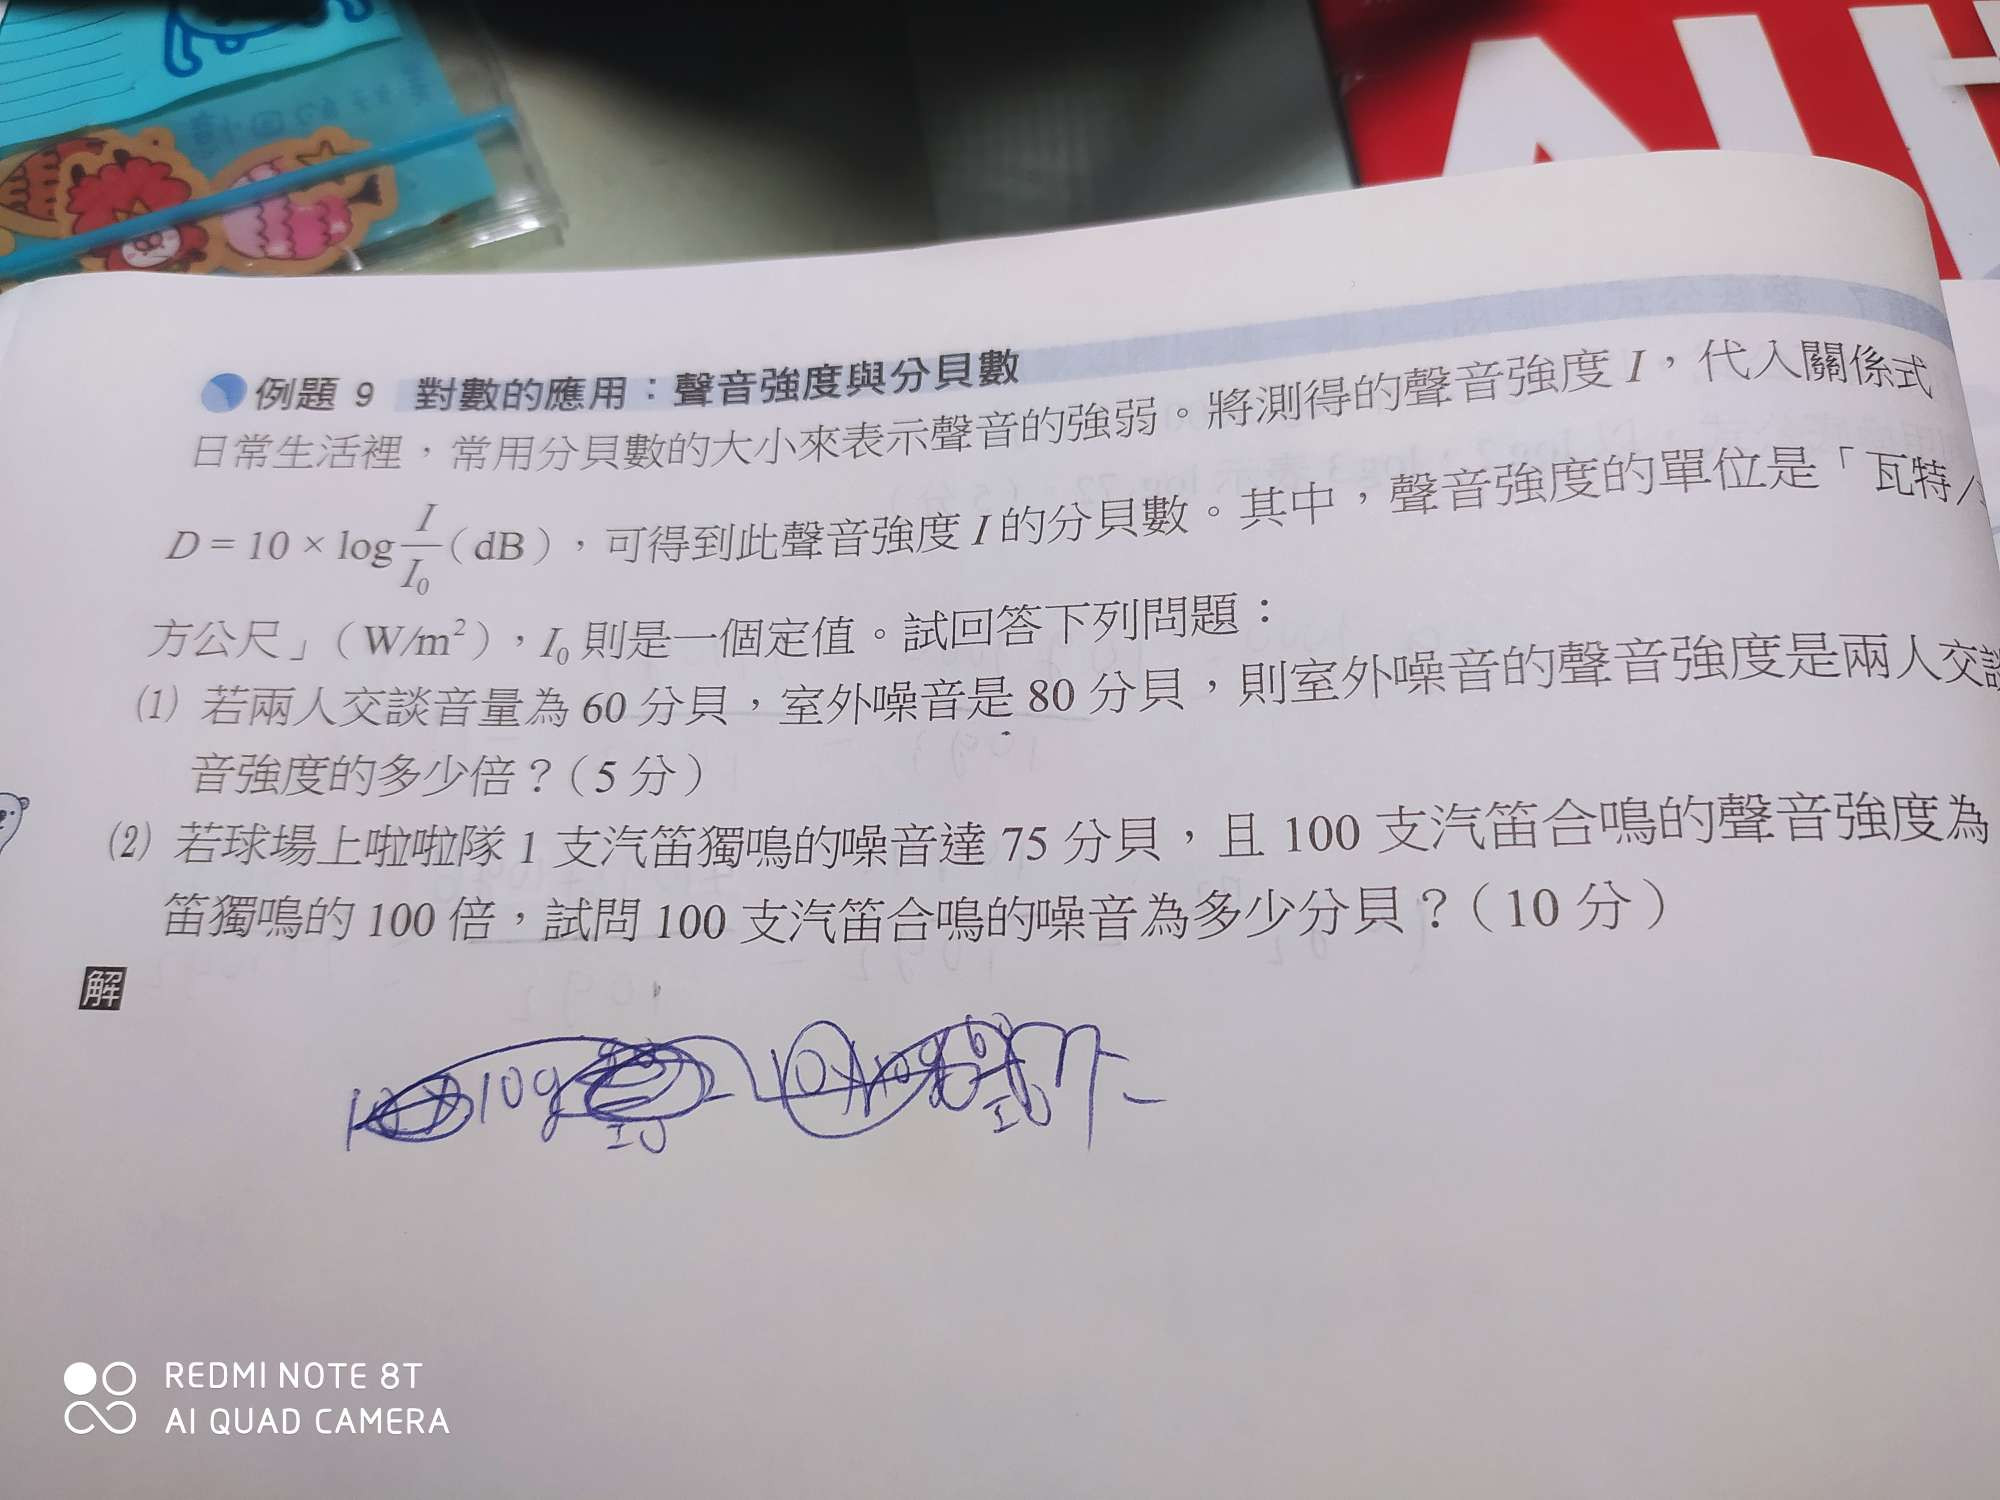 例題 9 對數的應用：聲音強度與分貝數
日常生活裡，常用分貝數的大小來表示聲音的強弱。將測得的聲音強度 I，代入關係式
D = 10 × log I/I₀ (dB)，可得到此聲音強度 I 的分貝數。其中，聲音強度的單位是「瓦特/
方公尺」(W/m²)，I₀ 則是一個定值。試回答下列問題：
(1) 若兩人交談音量為 60 分貝，室外噪音是 80 分貝，則室外噪音的聲音強度是兩人交談
音強度的多少倍？(5 分)
(2) 若球場上啦啦隊 1 支汽笛獨鳴的噪音達 75 分貝，且 100 支汽笛合鳴的聲音強度為
笛獨鳴的 100 倍，試問 100 支汽笛合鳴的噪音為多少分貝？(10 分)
解
REDMI NOTE 8T
AI QUAD CAMERA